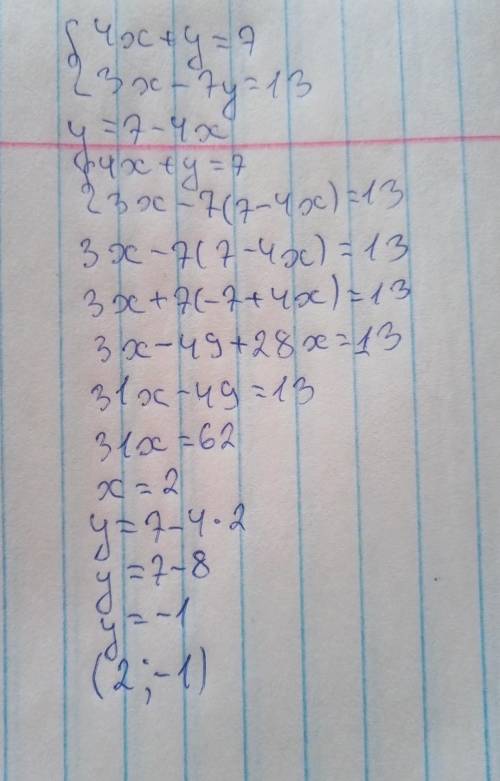 {4x+y=7
{3x-7y=13
y=7-4x
{4x+y=7
{3x-7(7-4x)=13
3x-7(7-4x)=13
3x+7(-7+4x)=13
3x-49+28x=13
31x-49=13
31x=62
x=2
y=7-4·2
y=7-8
y=-1
(2;-1)